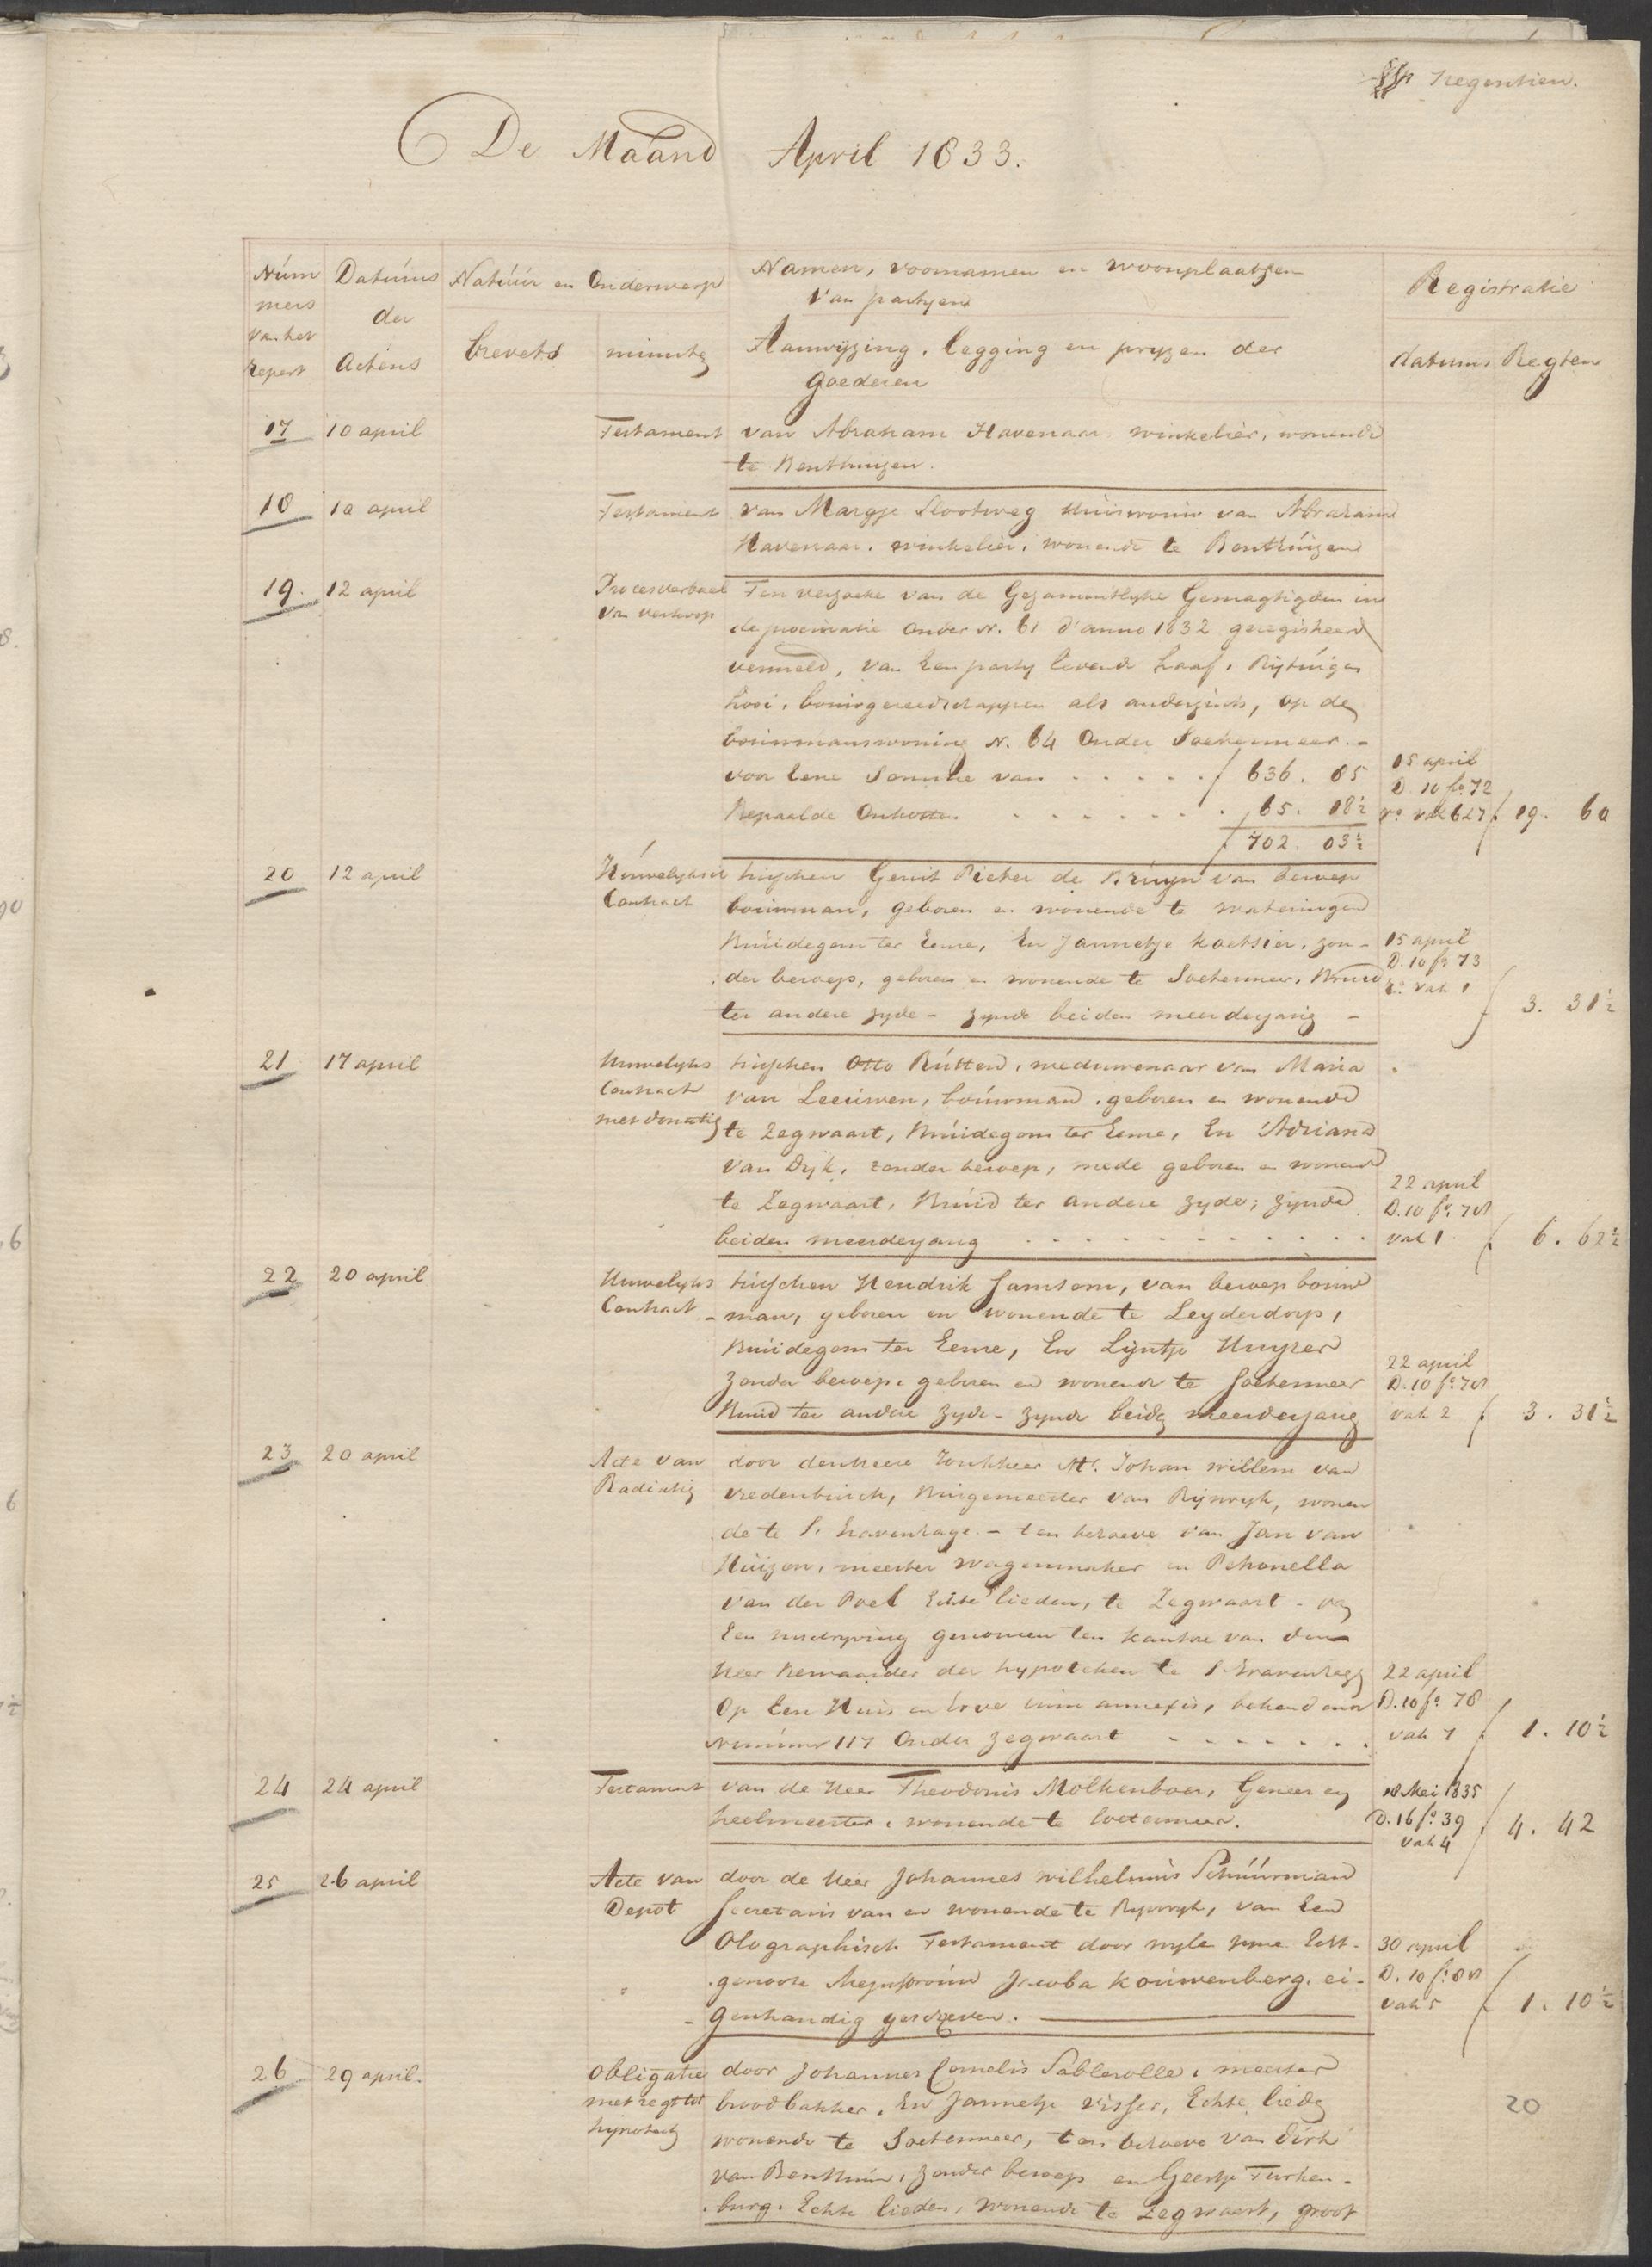 Negentien.
De Maand April 1833.
Núm Datúms Natúúr en Onderwerp Namen, voornamen en woonplaatsen Registratie
mers der van partyen
van het
repert Actens brevets minuten Aanwyzing, legging en pryzen der datums Regten
goederen
17 10 april Testament van Abraham Havenaar winkelier, wonende
te Benthuizen.
18 10 april Testament van Margje Slootweg Huisvrouw van Abraham
Havenaar, winkelier, wonende te Benthúizen
19. 12 april Procesverbael Ten verzoeke van de Gezamentlyke Gemagtigden in
van verkoop de procuratie onder N. 61 d'anno 1832 geregistreerd
vermeld, van Een party levende Haaf, Rijtúigen
hooi, bouwgereedschappen als anderzints, op de
bouwmanswoning N. 64 Onder Soetermeer. -
voor Eene Somme van . . . . . ƒ 636. 85 15 april
D. 10 fo. 72
Bepaalde Onkosten . . . . . . . 65. 18½ vo. vak 6 27 ƒ 19. 60
ƒ 702. 03½
20 12 april Húwelyksch tusschen Gerrit Pieter de Bruyn van beroep
Contract bouwman, geboren en wonende te Wateringen
Brúidegom ter Eene, En Jannetje Koetsier, zon- 15 april
D. 10 fo. 73
der beroep, geboren en wonende te Soetermeer, Bruid ro. vak 1
ter andere zyde - zynde beiden meerderjarig - ƒ 3. 31½
21 17 april Huwelyks tusschen Otto Rútten, weduwenaar van Maria
Contract van Leeuwen, boúwman, geboren en wonende
met donatie te Zegwaart, Brúidegom ter Eene, En Adriana
van Dijk, zonder beroep, mede geboren en wonende
te Zegwaart, Brúid ter andere zyde; zynde 22 april
D. 10 fo. 78
beiden meerderjarig . . . . . . . . . . . . vak 1 ƒ 6. 62½
22 20 april Huwelyks tusschen Hendrik Samsom, van beroep bouw
Contract -man, geboren en wonende te Leyderdorp,
Brúidegom ter Eene, En Lijntje Huyzer
zonder beroep, geboren en wonende te Soetermeer 22 april
D. 10 fo. 78
Bruid ter andere zyde - zynde beide meerderjarig vak 2 ƒ 3. 31½
23 20 april Acte van door den Heere Jonkheer Mr. Johan Willem van
Radiatie Vredenburch, Burgemeester van Rijswyk, wonen
de te S. Gravenhage - ten behoeve van Jan van
Húizen, meester Wagenmaker en Petronella
van der Poel Echte lieden, te Zegwaart - van
Een inschryving genomen ten kantore van den
Heer Bewaarder der hypotheken te S Gravenhage 22 april
Op Een Huis en Erve cum annexis, bekend onder D. 10 fo. 78
Nummer 117 Onder Zegwaart . . . . . . . vak 7 ƒ 1. 10½
24 24 april Testament van de Heer Theodorus Molkenboer, Genees en 18 Mei 1835
heelmeester, wonende te Soetermeer. D. 16 fo. 39
vak 4 ƒ 4. 42
25 26 april Acte van door de Heer Johannes Wilhelmús Schúúrman
Depot Secretaris van en wonende te Ryswyk, van Een
Olographisch Testament door wyle zyne Echt- 30 april
genoote Mejufvrouw Jacoba Kouwenberg, ei- D. 10 fo. 88
- genhandig geschreven. vak 5 ƒ 1. 10½
26 29 april. Obligatie door Johannes Cornelis Sablerolle, meester
met regt tot broodbakker, En Jannetje Visser, Echte liede 20
hypotheek wonende te Soetermeer, ten behoeve van Dirk
van Benthem, zonder beroep en Geertje Turken-
burg, Echte lieden, wonende te Zegwaart, groot